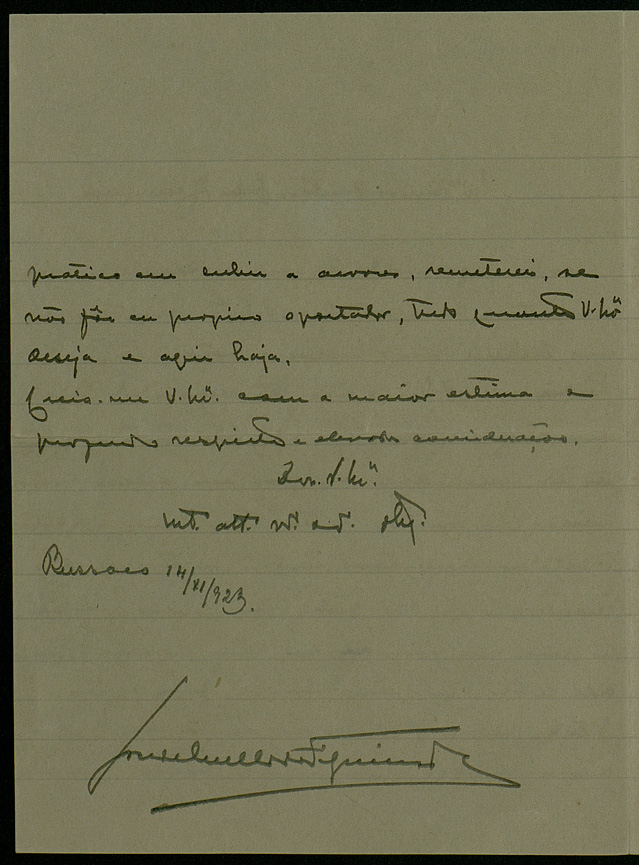 pratico em subir a arvores, remeterei, se
não fôr eu proprio o portador, tudo quanto V. Exª
deseja e aqui haja.
Creia-me V. Exª. com a maior estima e
profundo respeito e elevada consideração.
De V. Exª.
Mt. att. vº. e obgº.
Bussaco 14/XI/923.